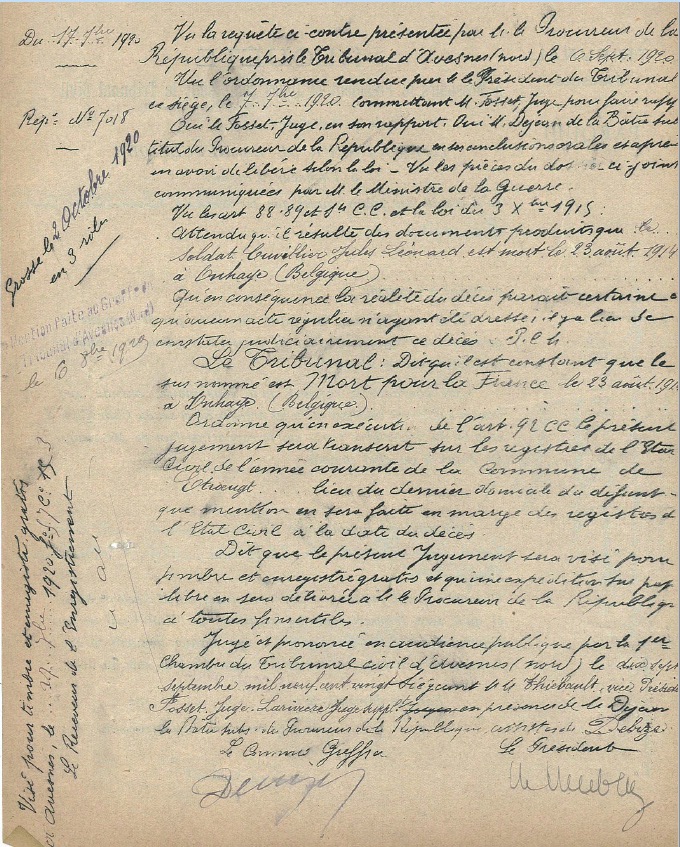 Du 17 7bre 1920
Repre No 7018
Grosse le 2 Octobre 1920
en 3 rôles
Mention faite au Greffe
Tribunal d'Avesnes (Nord)
le 6 8bre 1920
Visé pour timbre et enregistré gratis
Avesnes, le 1920
Le Receveur de l'Enregistrement
Vu la requête ci-contre présentée par M. le Procureur de la
République près le Tribunal d'Avesnes (Nord) le 6 Sept. 1920
Vu l'ordonnance rendue par M. le Président du Tribunal
ce siège, le 7 7bre 1920 commettant M. Fosset, Juge, pour faire rapp
Oui M. Fosset, Juge, en son rapport. Oui M. Dejean de la Bâtie subs
titut du Procureur de la République en ses conclusions orales et après
en avoir délibéré selon la loi - Vu les pièces du dossier ci-joint
communiquées par M. le Ministre de la Guerre.
Vu les art 88-89 et C.C. et la loi du 3 Xbre 1915;
Attendu qu'il résulte des documents produits que le
Soldat Cuvillier Jules Léonard est mort le 23 août 1914
à Onhaye (Belgique)
Qu'en conséquence la réalité du décès paraît certaine
qu'aucun acte régulier n'ayant été dressé, il y a lieu de
constater judiciairement ce décès. P.C.M.
Le Tribunal: Dit qu'il est constant que le
sus nommé est Mort pour la France le 23 août 191
à Onhaye. (Belgique)
Ordonne qu'en exécution de l'art. 92 CC le présent
jugement sera transcrit sur les registres de l'Etat
Civil de l'année courante de la Commune de
Etroeungt lieu du dernier domicile du défunt
que mention en sera faite en marge des registres d
l'Etat Civil à la date du décès
Dit que le présent Jugement sera visé pour
timbre et enregistré gratis et qu'une expédition sur pap
libre en sera délivrée à M. le Procureur de la Républiqu
à toutes fins utiles.
Jugé et prononcé en audience publique par la 1er
Chambre du Tribunal Civil d'Avesnes (Nord) le dix sept
septembre mil neuf cent vingt siégeant M. M. Thiébault, vice Préside
Fosset, Juge, Larivière Juge suppl. en présence de M. Dejean
la Bâtie subs. du Procureur de la République, assistés de
Le Commis Greffier
Le Président